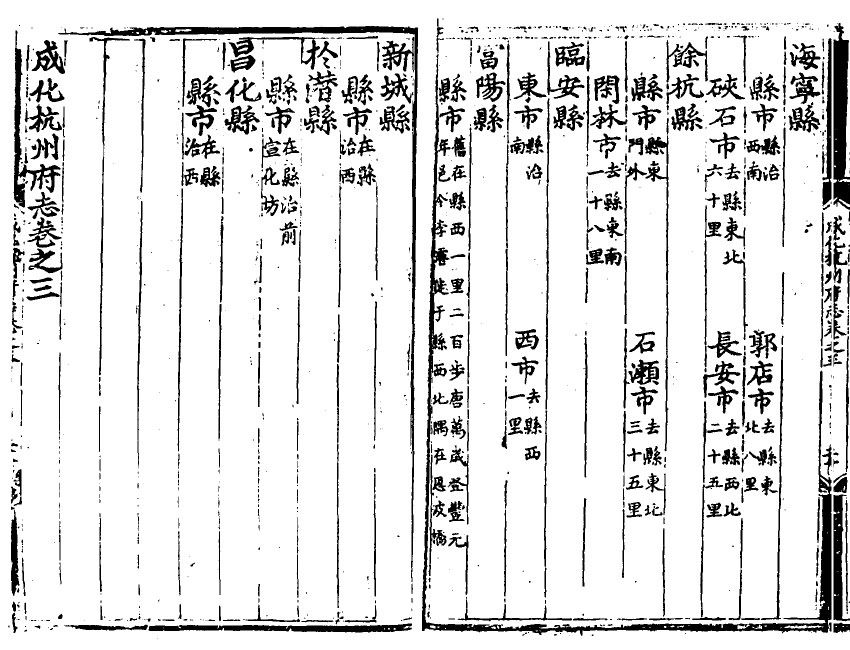 海寧縣
縣市 縣治西南 郭店市 去縣東北八里
硤石市 去縣東北六十里 長安市 去縣西北二十五里
餘杭縣
縣市 縣東門外 石瀨市 去縣東北三十五里
閑林市 去縣東南一十八里
臨安縣
東市 縣治南 西市 去縣西一里
富陽縣
縣市 舊在縣西一里二百步唐萬歲登豐元年邑令李濬徙于縣西北隅在恩波橋
新城縣
縣市 在縣治西
於潛縣
縣市 在縣治前宣化坊
昌化縣
縣市 在縣治西
成化杭州府志卷之三
成化杭州府志卷之三